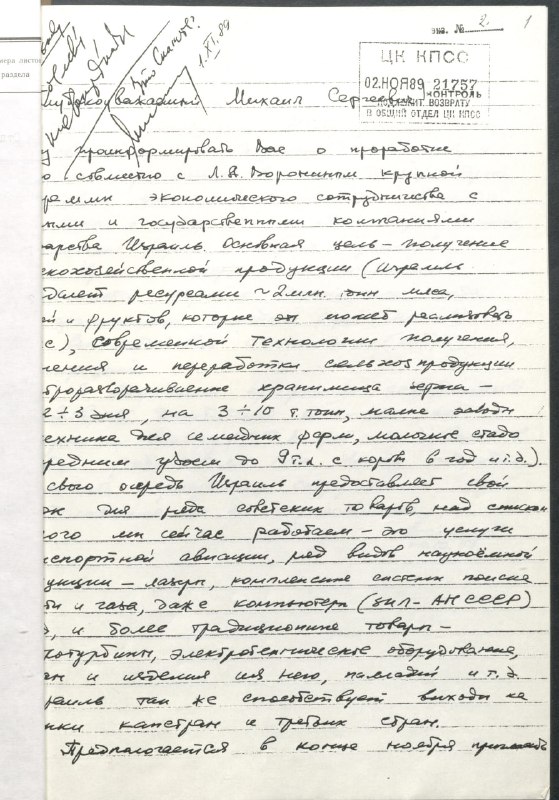 мера листов
раздела
экз. № 2.
1
ЦК КПСС
02.НОЯ89 21757
КОНТРОЛЬ
ПОДЛЕЖИТ ВОЗВРАТУ
В ОБЩИЙ ОТДЕЛ ЦК КПСС
1.XI.89
лубокоуважаемый Михаил Сергеевич
у проинформировать Вас о проработке
о совместно с Л.А. Ворониным крупной
раммы экономического сотрудничества с
ными и государственными компаниями
дарства Израиль. Основная цель – получение
скохозяйственной продукции (Израиль
дает ресурсами ~2 млн. тонн мяса,
й и фруктов, которые он может реализовать
с), современной технологии получения,
нения и переработки сельхозпродукции
быстроразворачиваемые хранилища зерна –
2÷3 дня, на 3÷10 т. тонн, малые заводы
ехника для семейных ферм, молочное стадо
редним удоем до 9 т.л. с коровы в год и т.д.)
свою очередь Израиль предоставляет свой
ок для ряда советских товаров, над списком
ого мы сейчас работаем – это услуги
спортной авиации, ряд видов наукоёмкой
укции – лазеры, комплексные системы поиска
ти и газа, даже компьютеры (ЗИЛ – АН СССР)
, и более традиционные товары –
отурбины, электротехническое оборудование,
ан и изделия из него, палладий и т.д.
раиль так же способствует выходу на
нки капстран и третьих стран.
Предполагается в конце ноября принять